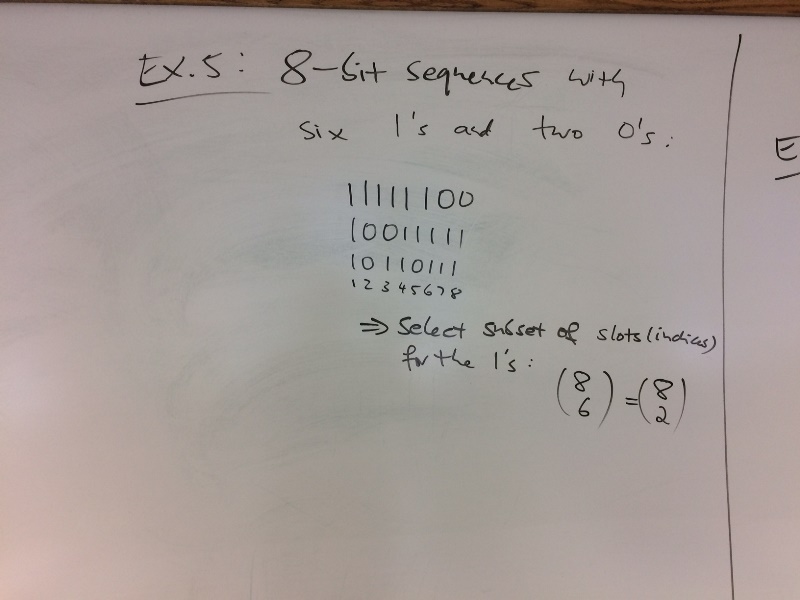 Ex.5: 8-bit sequences with
six 1's and two 0's:
11111100
10011111
10110111
1 2 3 4 5 6 7 8
⇒ Select subset of slots (indices)
for the 1's: (8 6) = (8 2)
E